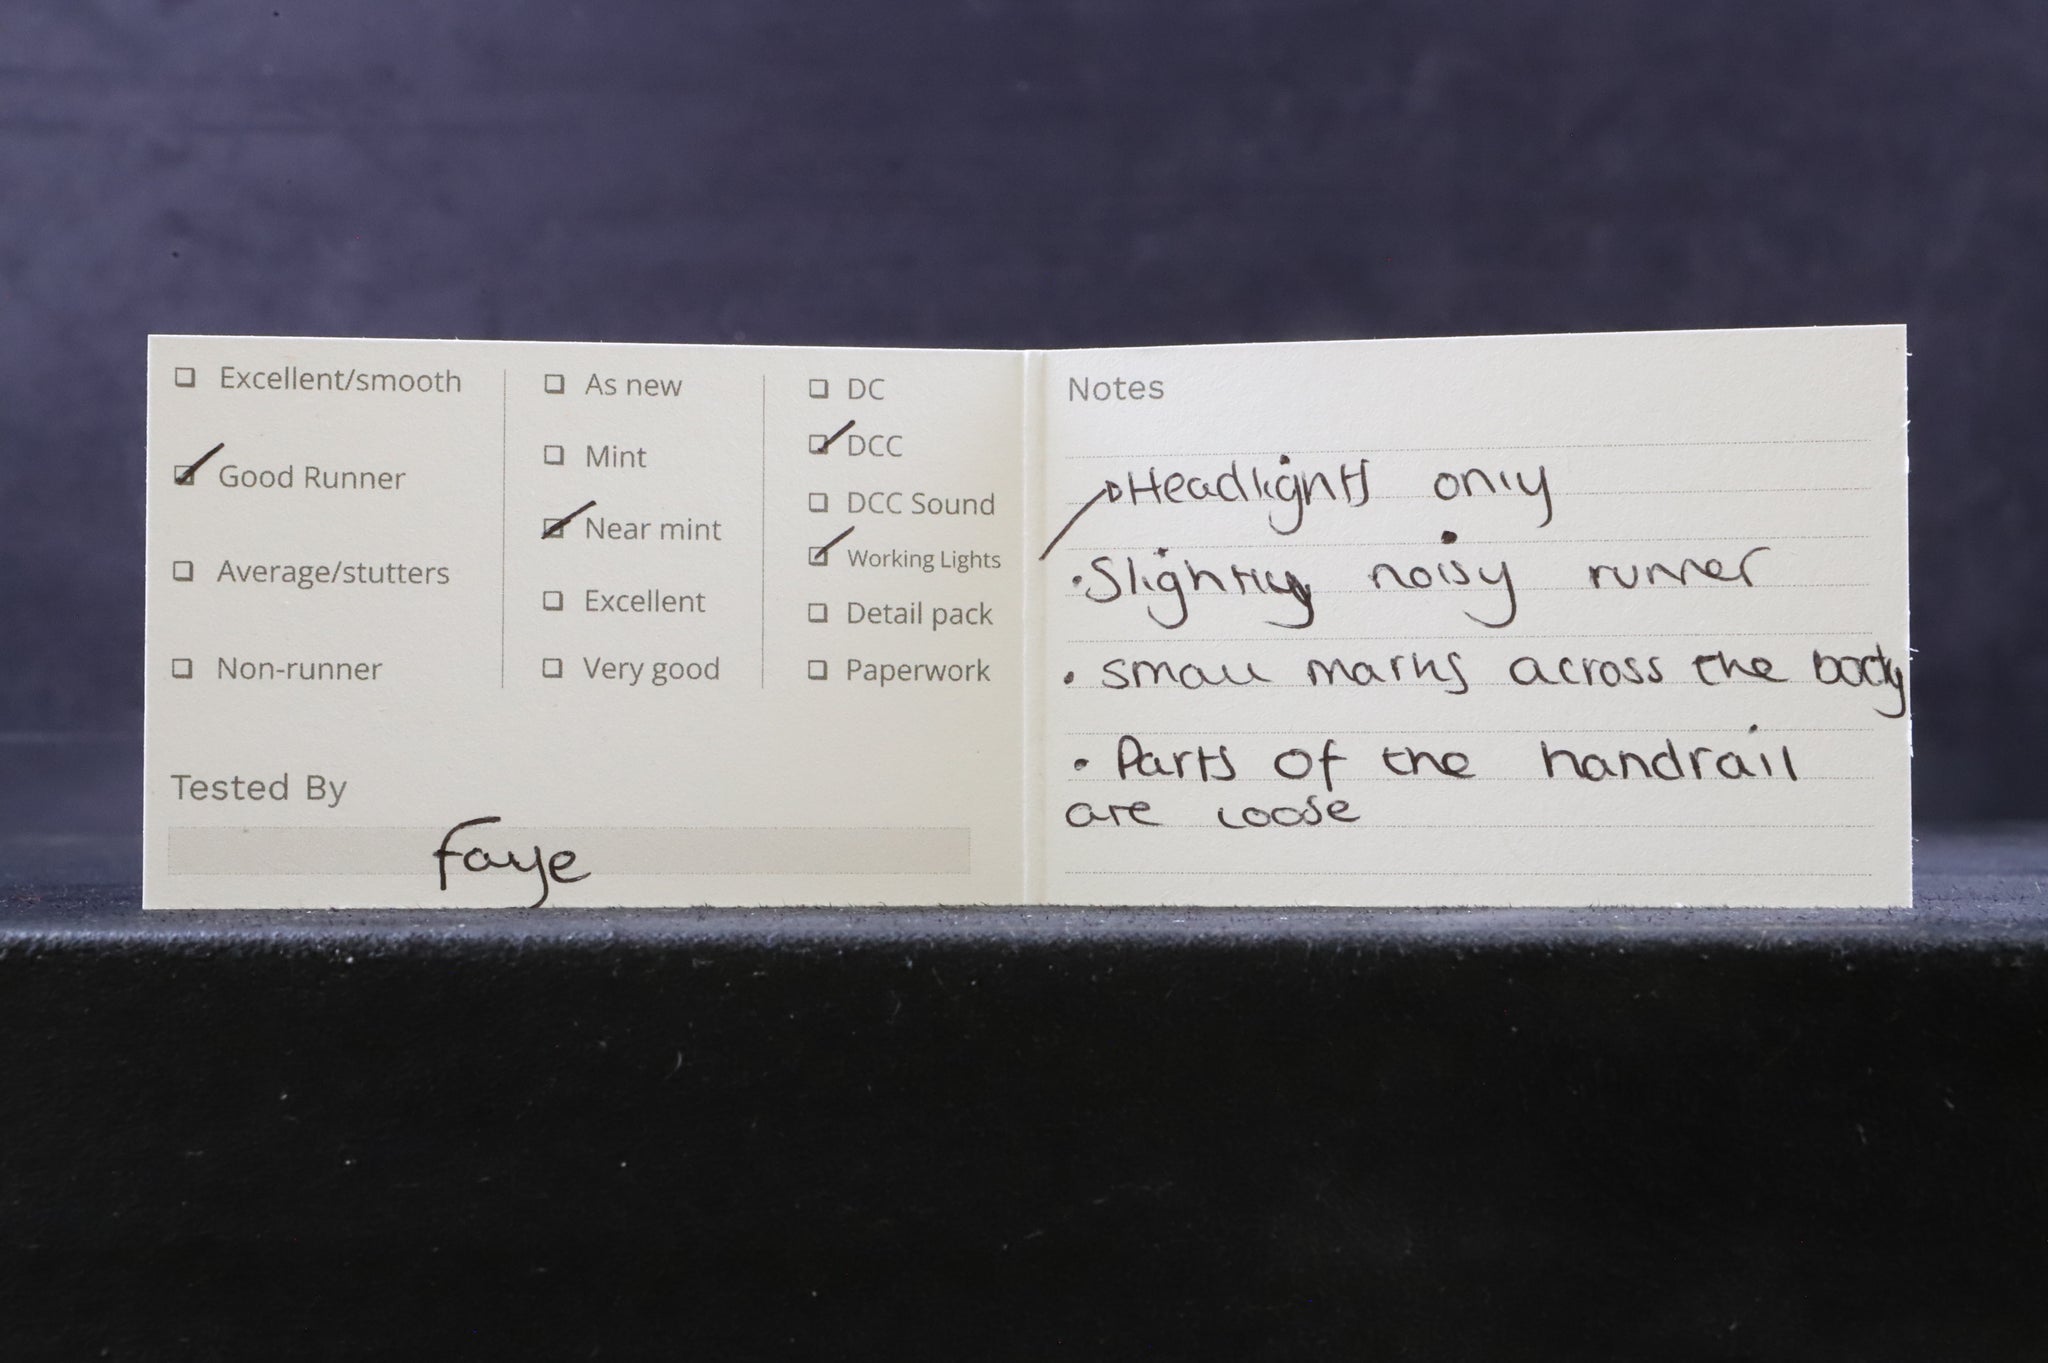 Excellent/smooth
Good Runner
Average/stutters
Non-runner
As new
Mint
Near mint
Excellent
Very good
DC
DCC
DCC Sound
Working Lights
Detail pack
Paperwork
Tested By
Faye
Notes
Headlights only
• Slightly noisy runner
• small marks across the body
• Parts of the handrail
are loose